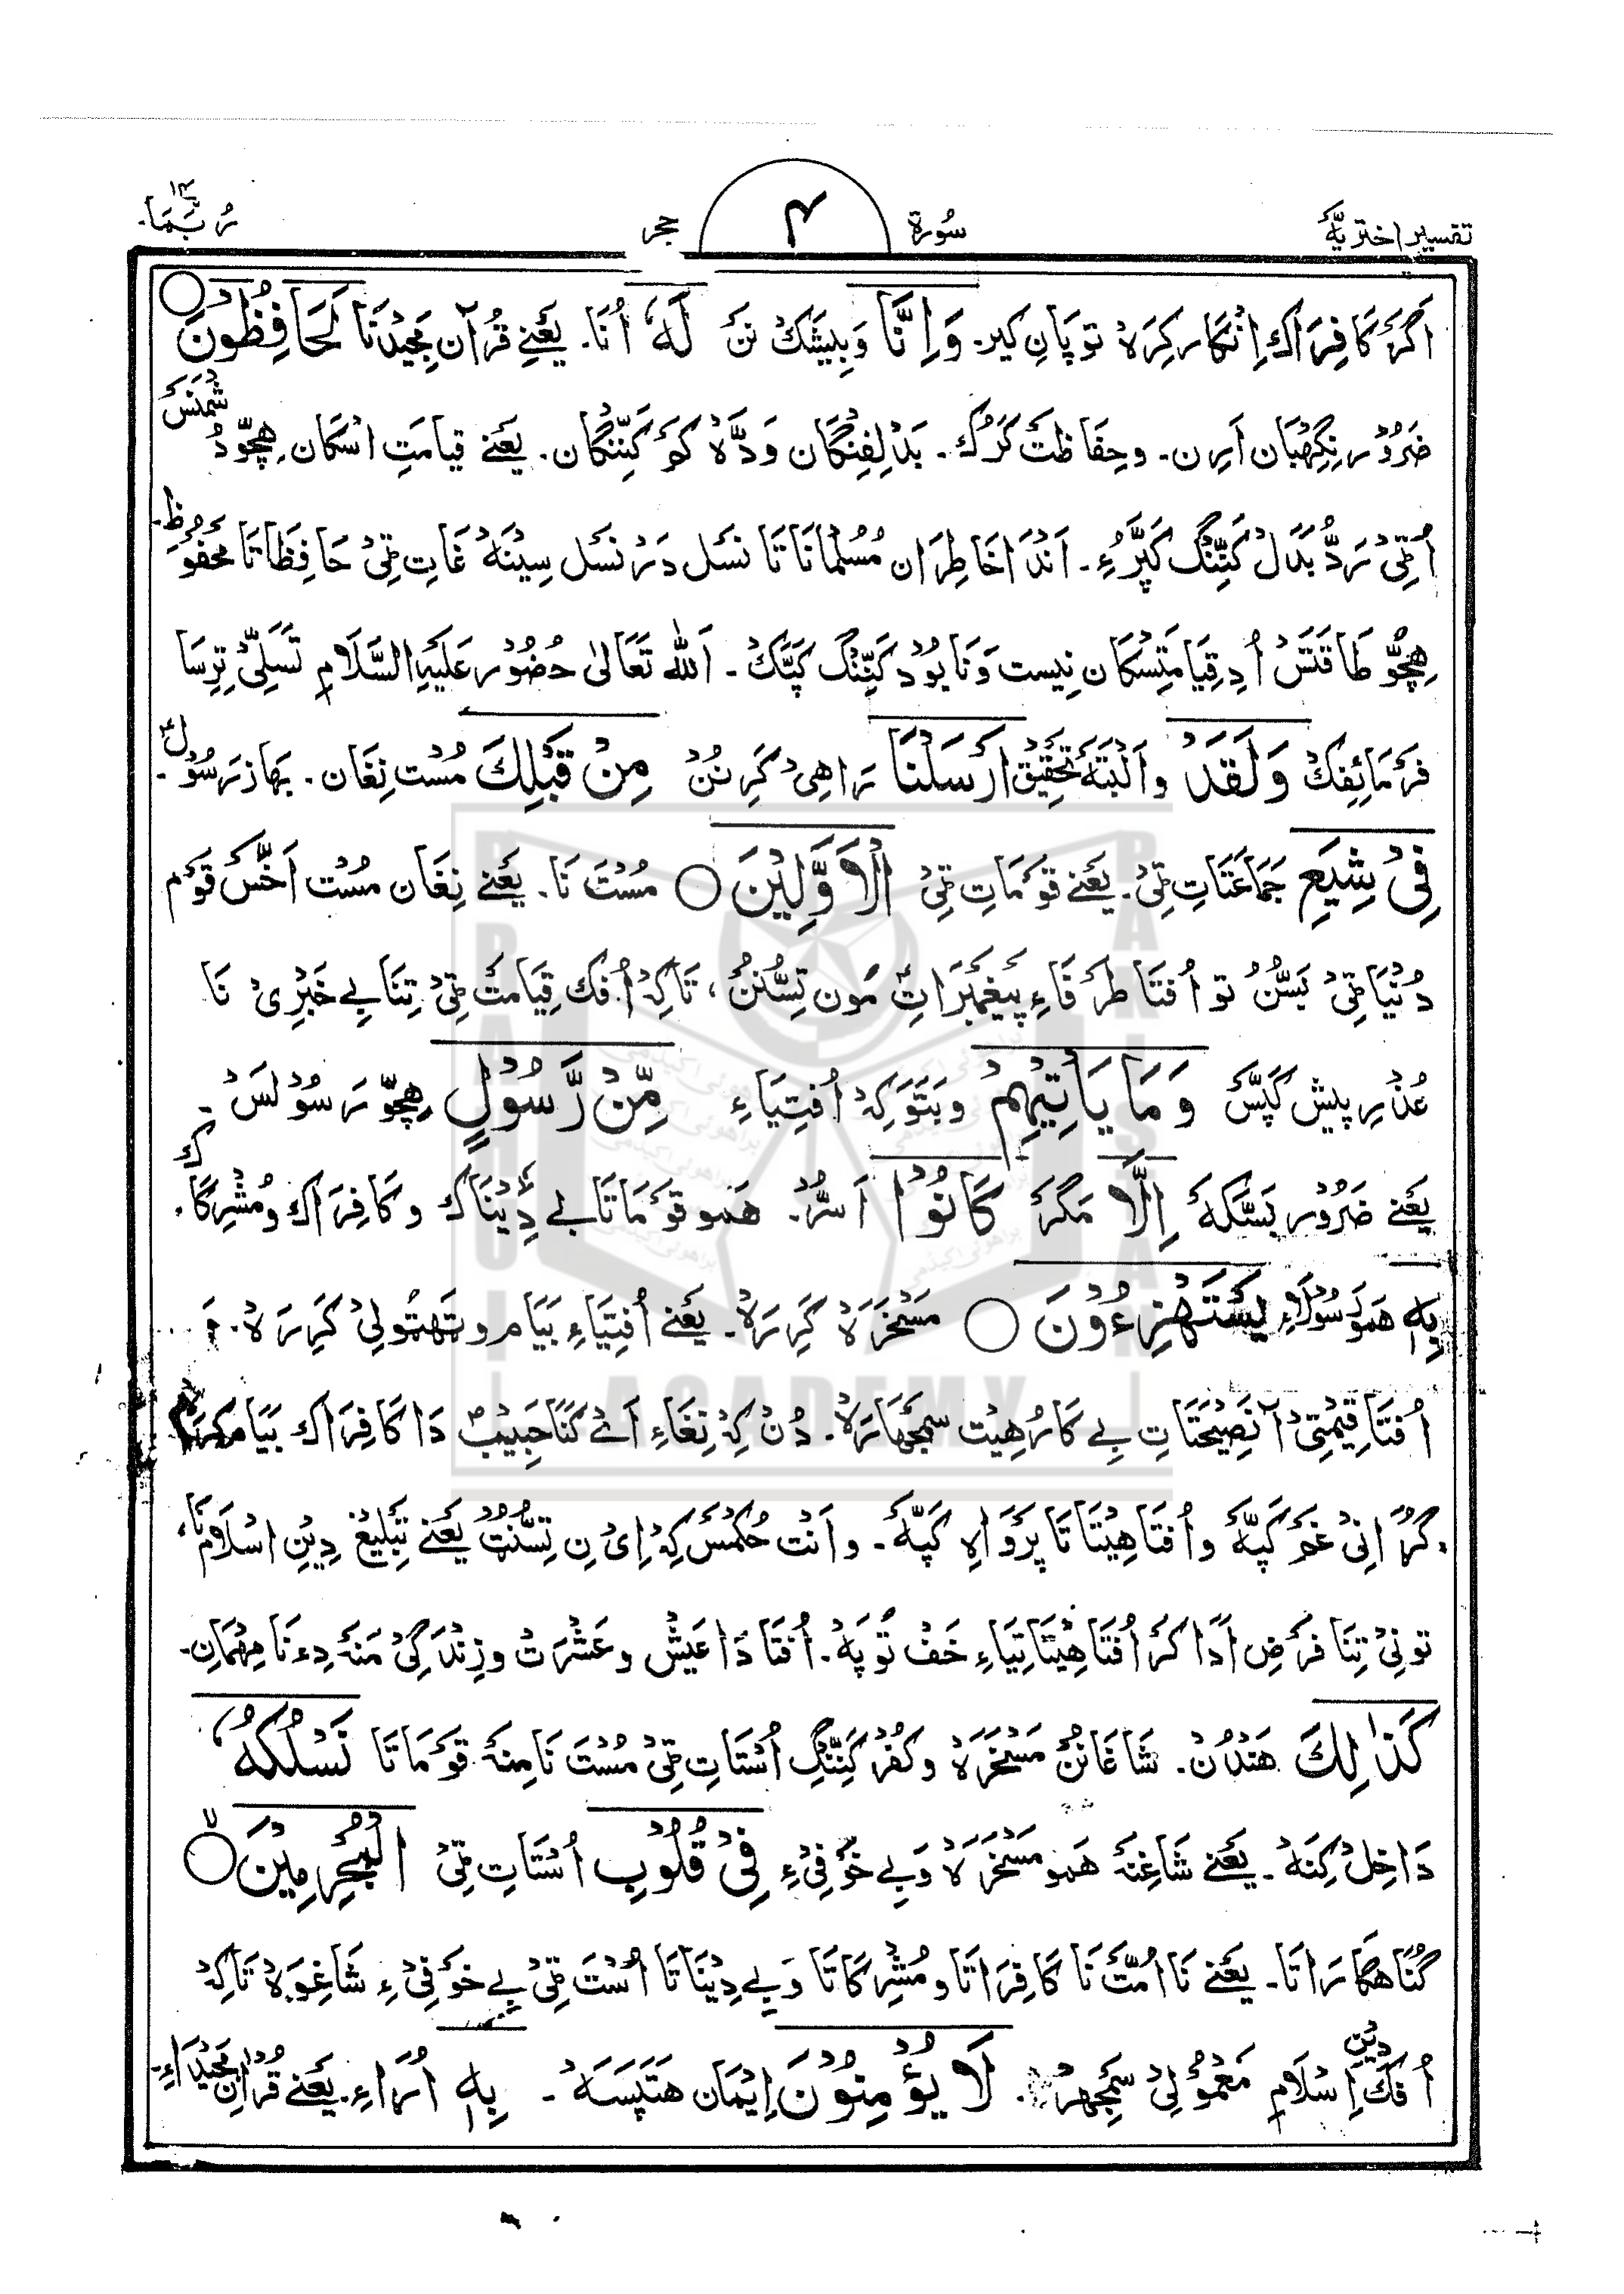 تفسیر اختریہ
سُورۃ
۴
حجر
رُبَمَا ۱۴
اَگرَ کَافِرَاک اِنکَار کِرَہ تو پَانِ کیر۔ وَاِنَّا وَبیشَک نَن لَهٗ اُنَا۔ یَعنے قُرآن مَجِیدنَا لَحَافِظُونَ ○
ضَرُور نِگہبَان اَرِن۔ وحِفَاظت کَرُک۔ بَدلِفِنگان وَدَّہ کَم کَنِّنگان۔ یَعنے قیامَتِ اسْکان ہِچّو دُشمنَس
اُٹِی رَدُّ بَدَل کَنِّنگ کَپَّرُءِ۔ اَندَاخَاطِرَان مُسلمَانَاتَا نسَل دَر نسَل سِینَہ غَاتِ ٹِی حَافِظَاتَا مَحفُوظ۔
ہِچّو طَاقَتَس اُدِ قِیَامَتِسکَان نِیست وَنَابُود کَنِّنگ کَپَّک۔ اَللہ تَعَالیٰ حُضُور عَلَیہِ السَّلَامِ تَسَلِّی تِرِسَا
فَرمَائِفِک وَلَقَدْ والبَتَّہ تَحقِیق اَرْسَلْنَا رَاہِی کَرِنُن مِنْ قَبْلِكَ مُست نِغَان۔ بَہَاز رَسُول۔
فِیْ شِیَعِ جَمَاعَتَاتِ ٹِی۔ یَعنے قَومَاتِ ٹِی الْاَوَّلِیْنَ ○ مُستَ نَا۔ یَعنے نِغَان مُست اَخَّس قَوم
دُنیَاٹِی بَسُّنُ تو اُفتَا طرَفَاءِ پَیغمبَراتِ مَون تِسُّنُن، تَاکِہ اُفک قِیَامتَ ٹِی تِنَا بے خَبرِی نَا
عُذرِ پیش کَپَّس وَمَا یَاْتِیْهِمْ وبَتَوَکِہ اُفتِیَاءِ مِّنْ رَّسُوْلٍ ہِچّو رَسُولَس۔
یَعنے ضَرُور بَسَّکہ اِلَّا مَگرَ کَانُوْا اَسُّر۔ ہَمو قَومَاتَا بے دِینَاک وکَافِرَاک ومُشرِکَاک
بِهٖ ہَمو رَسُولَاءِ یَسْتَهْزِءُوْنَ ○ مَسخَرَہ کَرِرَہ۔ یَعنے اُفتِیَاءِ بَیَام وتَہتَولِی کَرِرَہ۔ وَ
اُفتَا قِیمتِی آ نَصِیحَتَاتِ بے کَار ہِیت سَمجھَارَہ۔ دُن کِہ نِغَاءِ اَے کَنَا حَبِیبؐ دَا کَافِرَاک بَیَام کرِرَہ
گُڑَا نِی غَم کَپَّہ واُفتَا ہِیتَاتَا پَروَاہِ کَپَّہ۔ واَنت حُکمَس کِہ اِی نِ تِسُّنُٹ یَعنے تَبلِیغ دِینِ اسْلَام نَا،
تو نِی تِنَا فَرضِ اَدَا کَر اُفتَا ہِیتَاتِیَاءِ خَف تُوپَہ۔ اُفتَا دَا عَیش وعَشرَت وزِندَگِی مَنَہ دِءنَا مِہمَان۔
کَذٰلِكَ ہَندُن۔ شَاغَانُن مَسخَرَہ وکُفر کَنِّنگِ اُستَاتِ ٹِی مُستَ نَامِنَہ قَومَاتَا نَسْلُکُهٗ
دَاخِل کِنَہ۔ یَعنے شَاغِنَہ ہَمو مَسخَرَہ وَبے خَوفِی ءِ فِیْ قُلُوْبِ اُستَاتِ ٹِی الْمُجْرِمِیْنَ ○
گُنَاہگَارَاتَا۔ یَعنے نَا اُمَّت نَا کَافِرَاتَا ومُشرِکَاتَا وَبے دِینَاتَا اُستَ ٹِی بے خَوفِی ءِ شَاغِوَہ تَاکِہ
اُفک دِینِ اِسْلَامِ مَعمُولِی سَمجھر۔ لَا یُؤْمِنُوْنَ اِیمَان ہَتَپَسَہ۔ بِهٖ اُرَاءِ۔ یَعنے قُرآن مَجِیدَاءِ۔